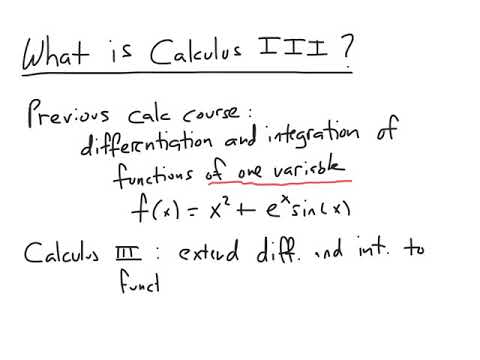 What is Calculus III?
Previous calc course:
differentiation and integration of
functions of one variable
f(x) = x² + eˣsin(x)
Calculus III: extend diff. and int. to
funct